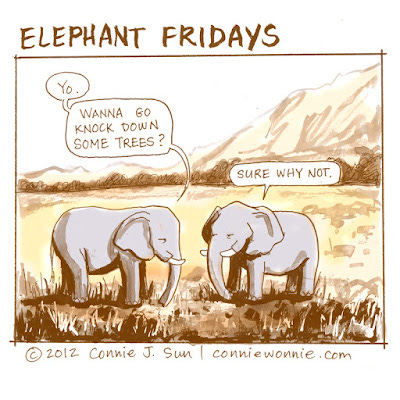 ELEPHANT FRIDAYS
YO.
WANNA GO
KNOCK DOWN
SOME TREES?
SURE WHY NOT.
© 2012 Connie J. Sun | conniewonnie.com